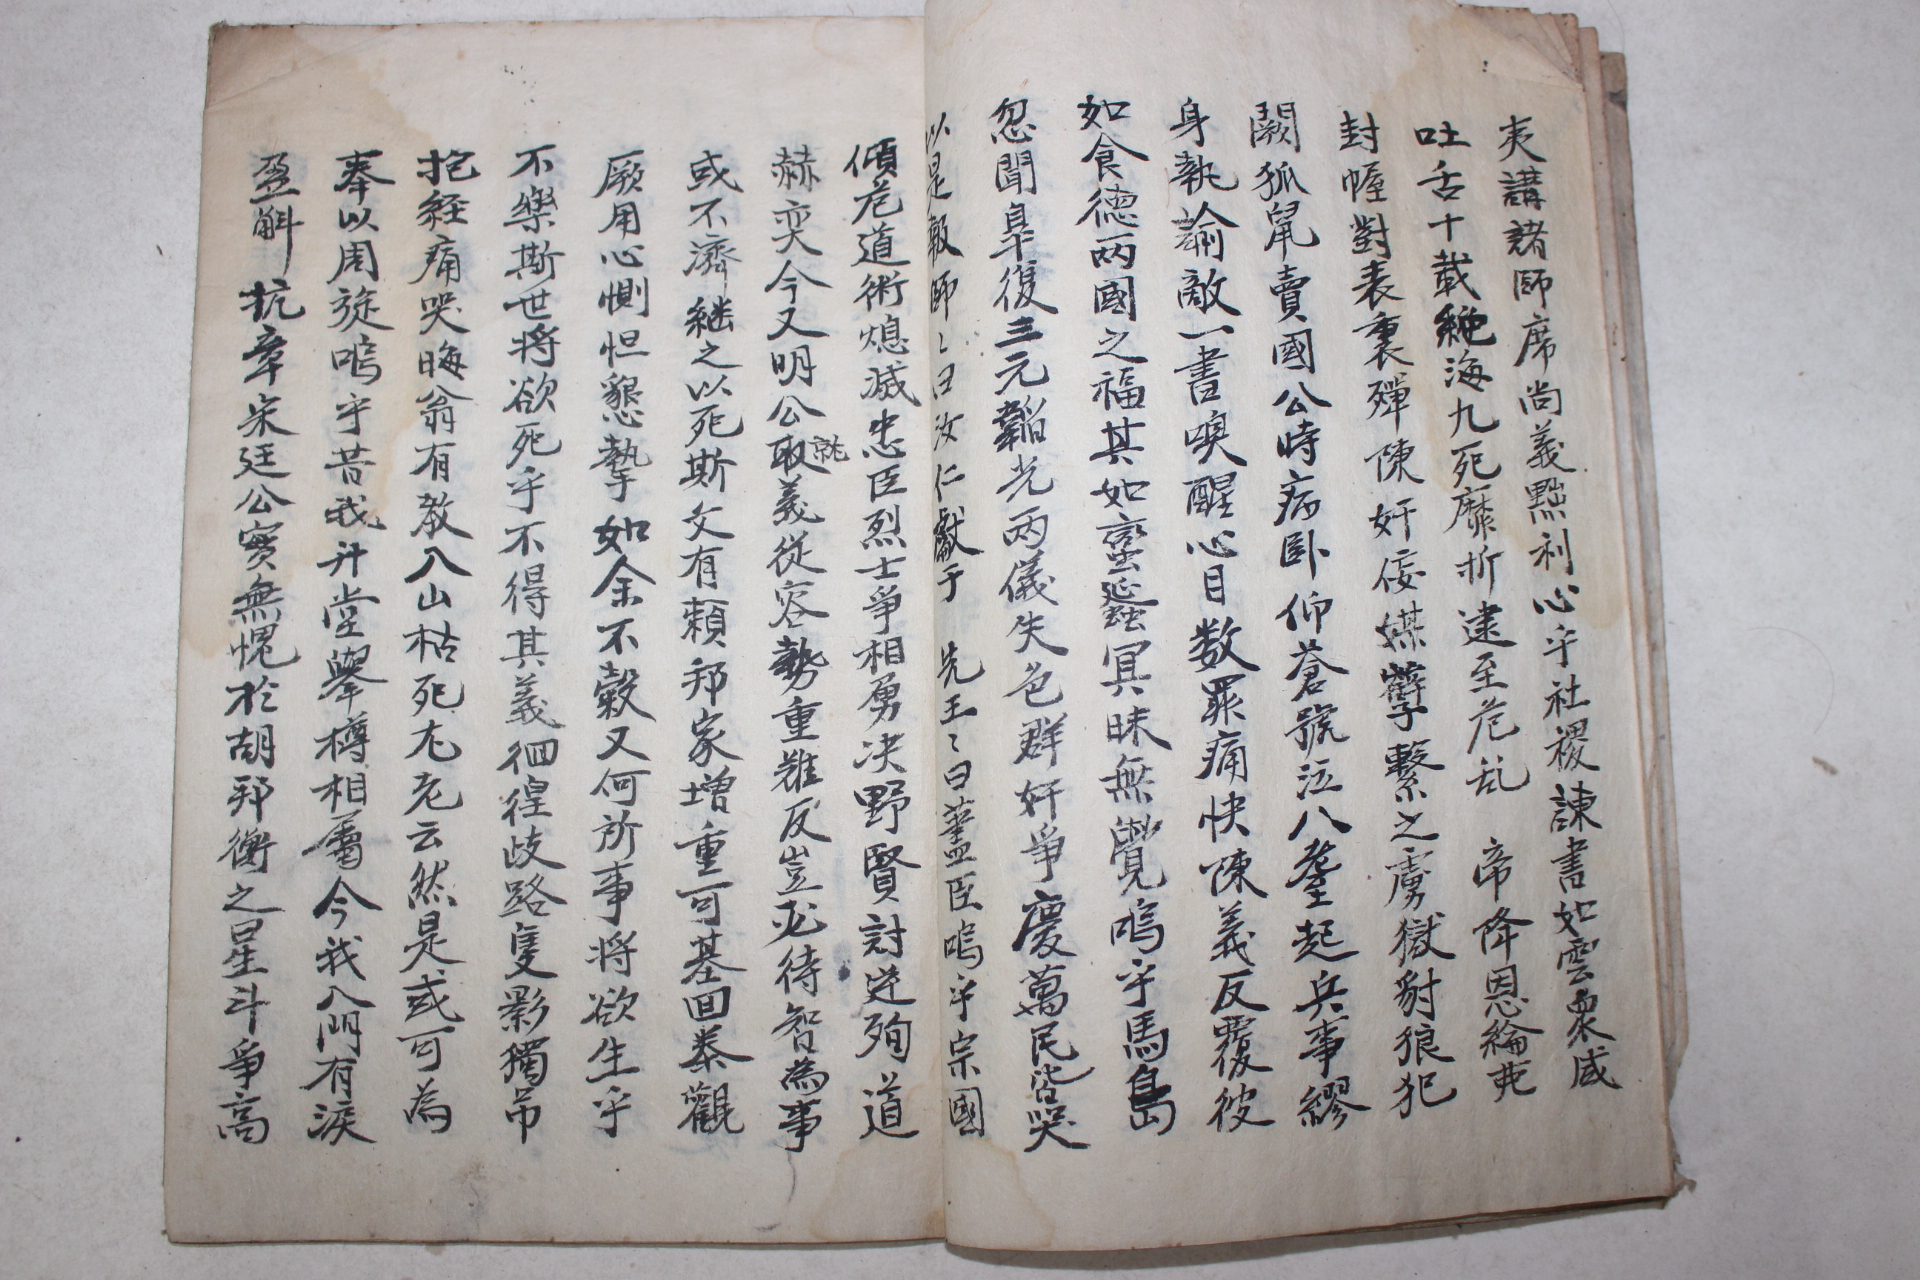 夷講諸師席尚義黜利心乎社稷諫書如雲衆咸
吐舌十載絶海九死靡折逮至危乱 帝降恩綸
封幄對表裏殫陳奸佞媒孼繫之虜獄豺狼犯
闕狐鼠賣國公時病臥仰蒼號泣八耋起兵事繆
身執論敵一書喚醒心目数罪痛快陳義反覆彼
如食德两國之福其如蠻蜑冥昧無覺嗚乎馬島
忽聞皐復三元韜光两儀失色群奸爭慶萬民皆哭
以是報師〻曰汝仁獻于 先王〻曰藎臣嗚乎宗國
傾危道術熄滅忠臣烈士爭相勇决野賢討逆殉道
赫奕今又明公取就義從容勢重難反豈必待智為事
或不濟継之以死斯文有賴邦家增重可基回泰觀
厥用心惻怛懇摯如余不穀又何所事将欲生乎
不樂斯世将欲死乎不得其義徊徨歧路隻影獨吊
抱経痛哭晦翁有教入山枯死尤老云然是或可為
奉以周旋嗚乎昔我升堂擧樽相屬今我入門有淚
盈斛抗章宋廷公實無愧於胡邦衡之星斗爭高